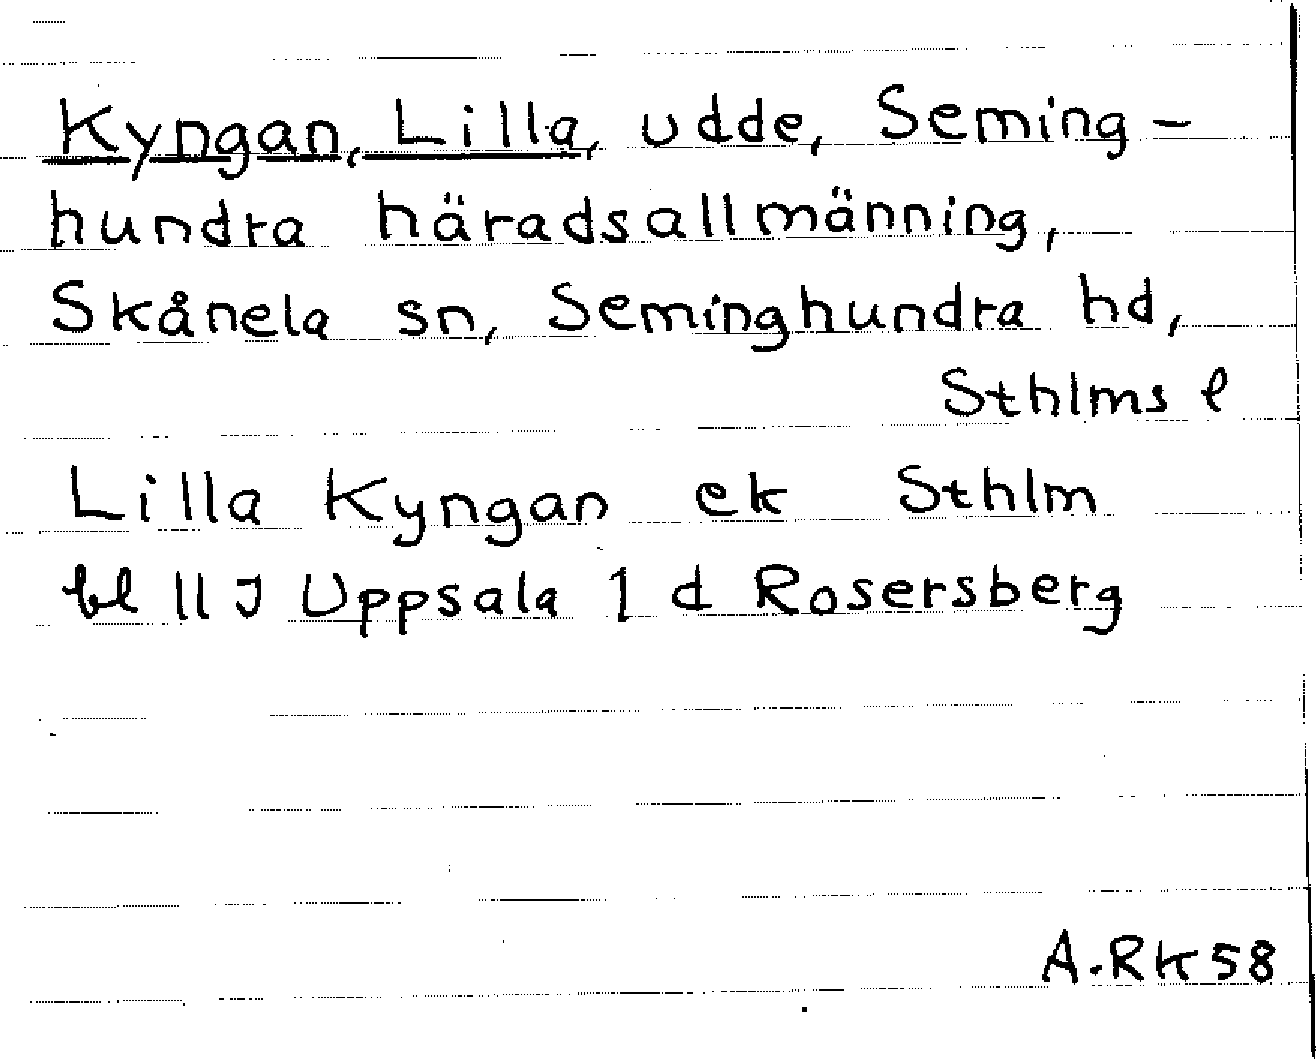 Kyngan, Lilla, udde, Seming-
hundra häradsallmänning,
Skånela sn, Seminghundra hd,
Sthlms l
Lilla Kyngan ek Sthlm
bl 11 J Uppsala 1 d Rosersberg
A.RK58